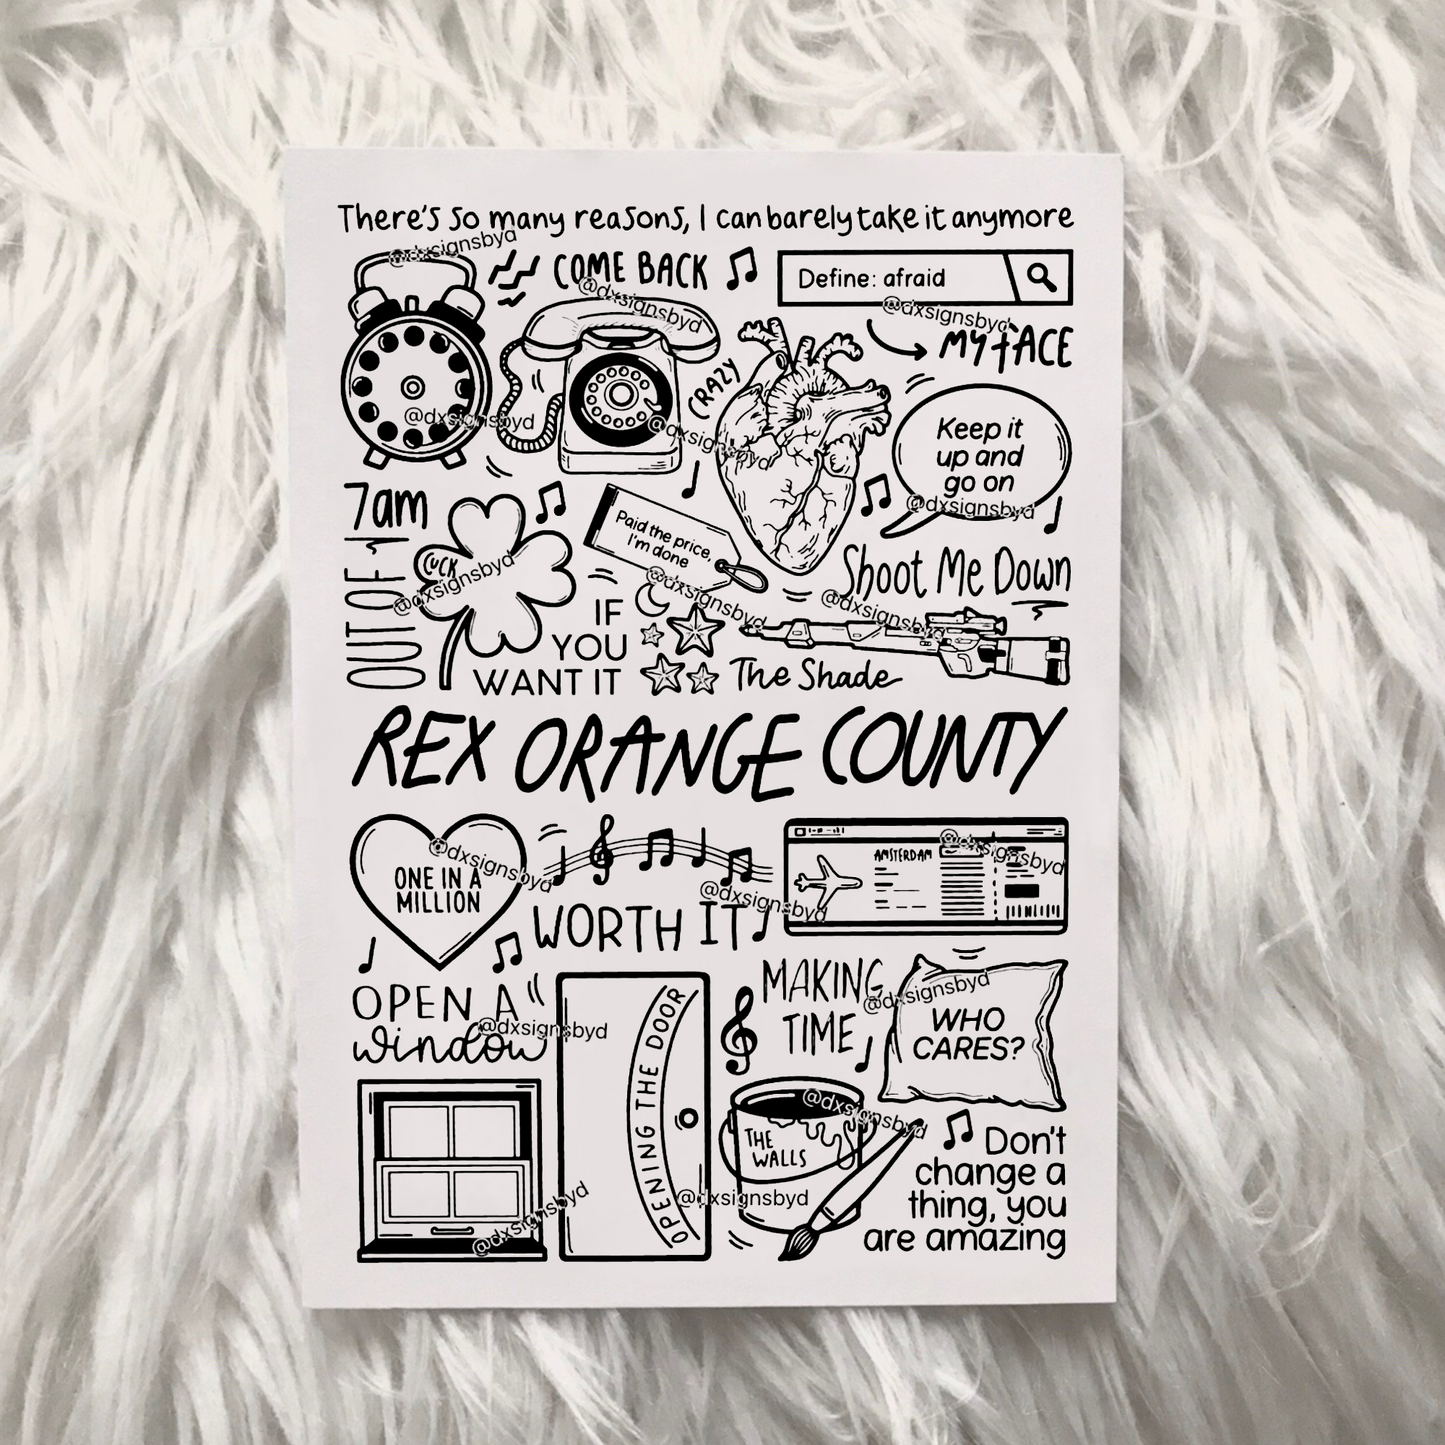 There's so many reasons, I can barely take it anymore
@dxsignsbyd
COME BACK
@dxsignsbyd
Define: afraid
@dxsignsbyd
MY FACE
CRAZY
@dxsignsbyd
@dxsignsbyd
Keep it
up and
go on
@dxsignsbyd
7am
OUT OF
LUCK
@dxsignsbyd
Paid the price,
I'm done
@dxsignsbyd
Shoot Me Down
@dxsignsbyd
IF
YOU
WANT IT
The Shade
REX ORANGE COUNTY
ONE IN A
MILLION
@dxsignsbyd
WORTH IT
@dxsignsbyd
AMSTERDAM
@dxsignsbyd
OPEN A
window
@dxsignsbyd
OPENING THE DOOR
MAKING
TIME
@dxsignsbyd
WHO
CARES?
THE
WALLS
@dxsignsbyd
@dxsignsbyd
@dxsignsbyd
Don't
change a
thing, you
are amazing